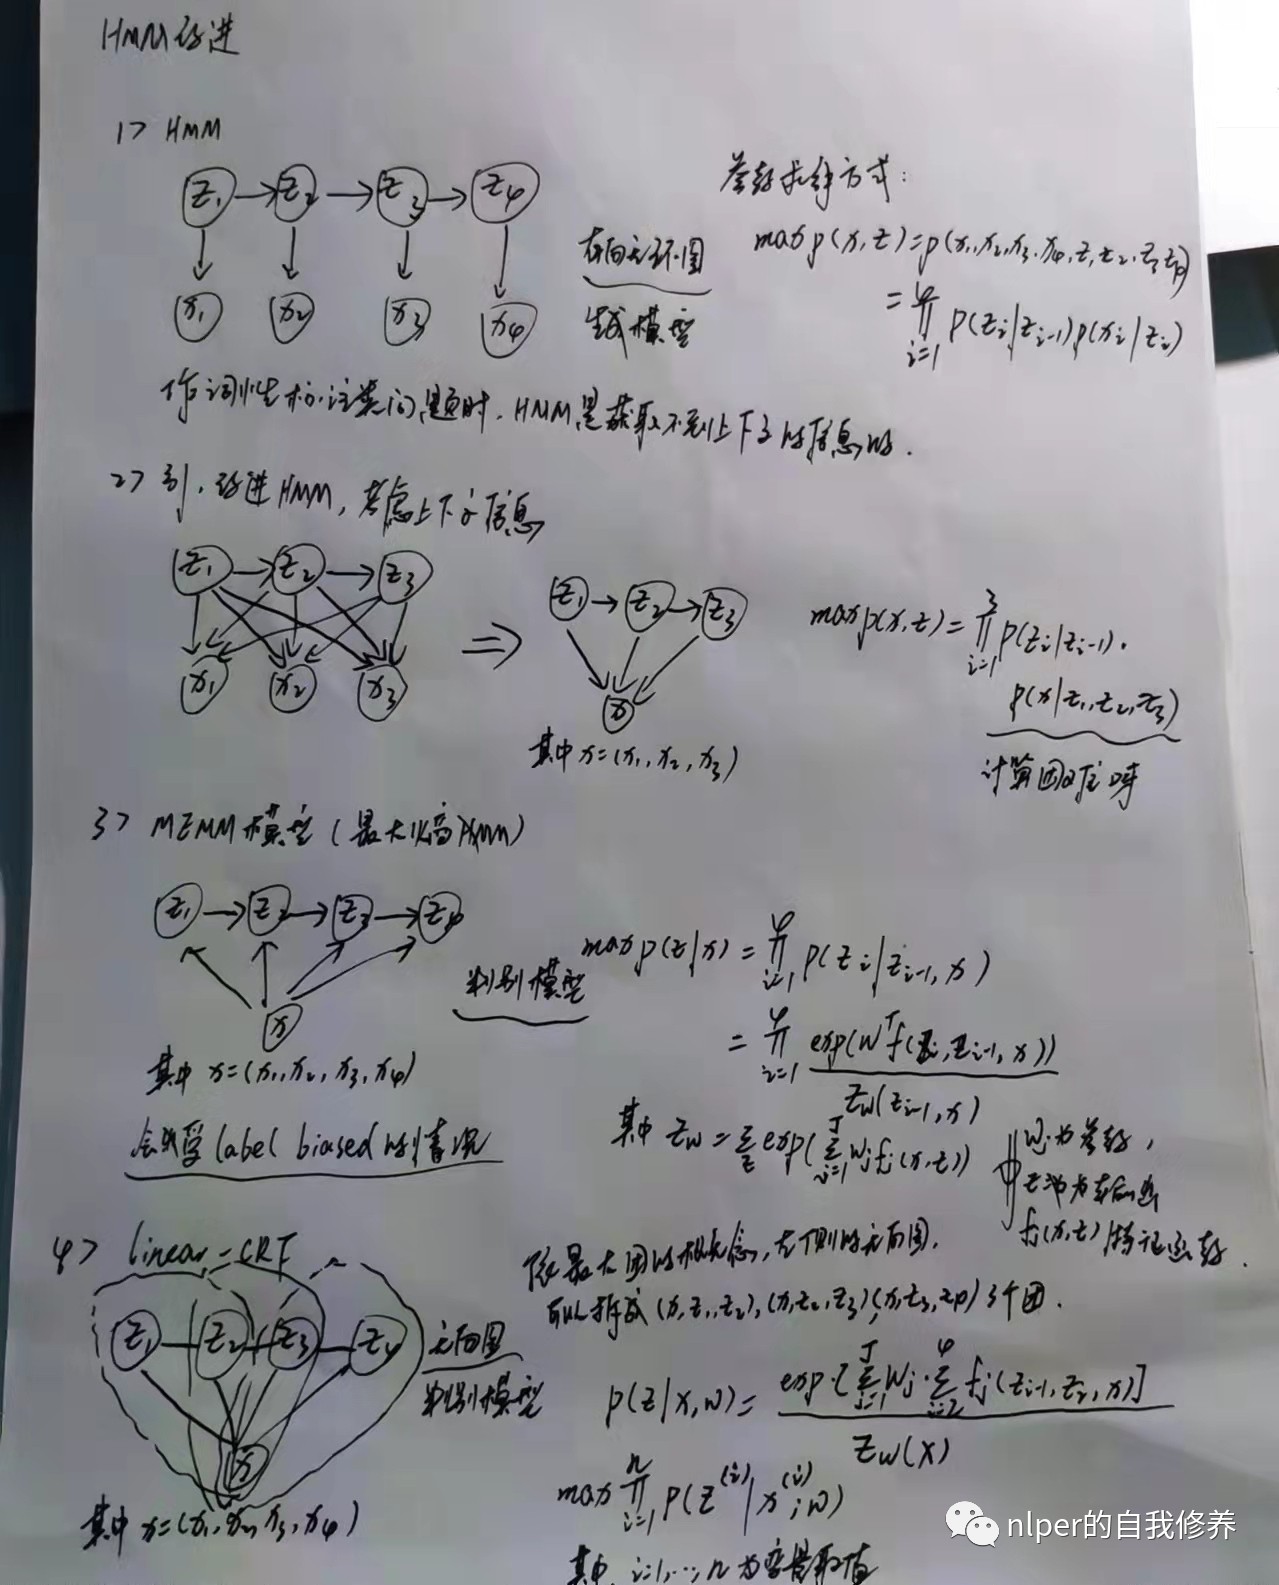 HMM改进
1> HMM
z₁ → z₂ → z₃ → z₄
x₁ x₂ x₃ x₄
有向无环图
生成模型
参数求解方式:
max p(x,z)=p(x₁,x₂,x₃,x₄,z₁,z₂,z₃,z₄)
=∏ᵢ₌₁⁴ p(zᵢ|zᵢ₋₁)p(xᵢ|zᵢ)
作词性标注类问题时,HMM是获取不到上下文的信息的.
2> 改进HMM,考虑上下文信息
z₁ → z₂ → z₃
x₁ x₂ x₃
⇒
z₁ → z₂ → z₃
x
其中x=(x₁,x₂,x₃)
max p(x,z)=∏ᵢ₌₁³ p(zᵢ|zᵢ₋₁).
p(x|z₁,z₂,z₃)
计算困难呀
3> MEMM模型(最大熵HMM)
z₁ → z₂ → z₃ → z₄
x
判别模型
其中 x=(x₁,x₂,x₃,x₄)
label biased的情况
max p(z|x)=∏ᵢ₌₁⁴ p(zᵢ|zᵢ₋₁,x)
=∏ᵢ₌₁⁴ exp(wᵀf(zᵢ,zᵢ₋₁,x))
z_w(zᵢ₋₁,x)
其中 z_w=Σ_z exp(Σᵢ₌₁ᴶ wⱼfⱼ(x,z))
wⱼ为参数,
fⱼ(x,z)特征函数.
4> linear-CRF
z₁ z₂ z₃ z₄
x
无向图
判别模型
其中 x=(x₁,x₂,x₃,x₄)
依最大团的概念,左侧的无向图.
可以拆成(x,z₁,z₂),(x,z₂,z₃)(x,z₃,z₄)3个团.
p(z|x,w)= exp·[Σⱼ₌₁ᴶ wⱼ·Σᵢ₌₂⁴ fⱼ(zᵢ₋₁,zᵢ,x)]
z_w(x)
max ∏ᵢ₌₁ⁿ p(z⁽ⁱ⁾|x⁽ⁱ⁾;w)
其中,i=1,…,n为变量取值
nlper的自我修养